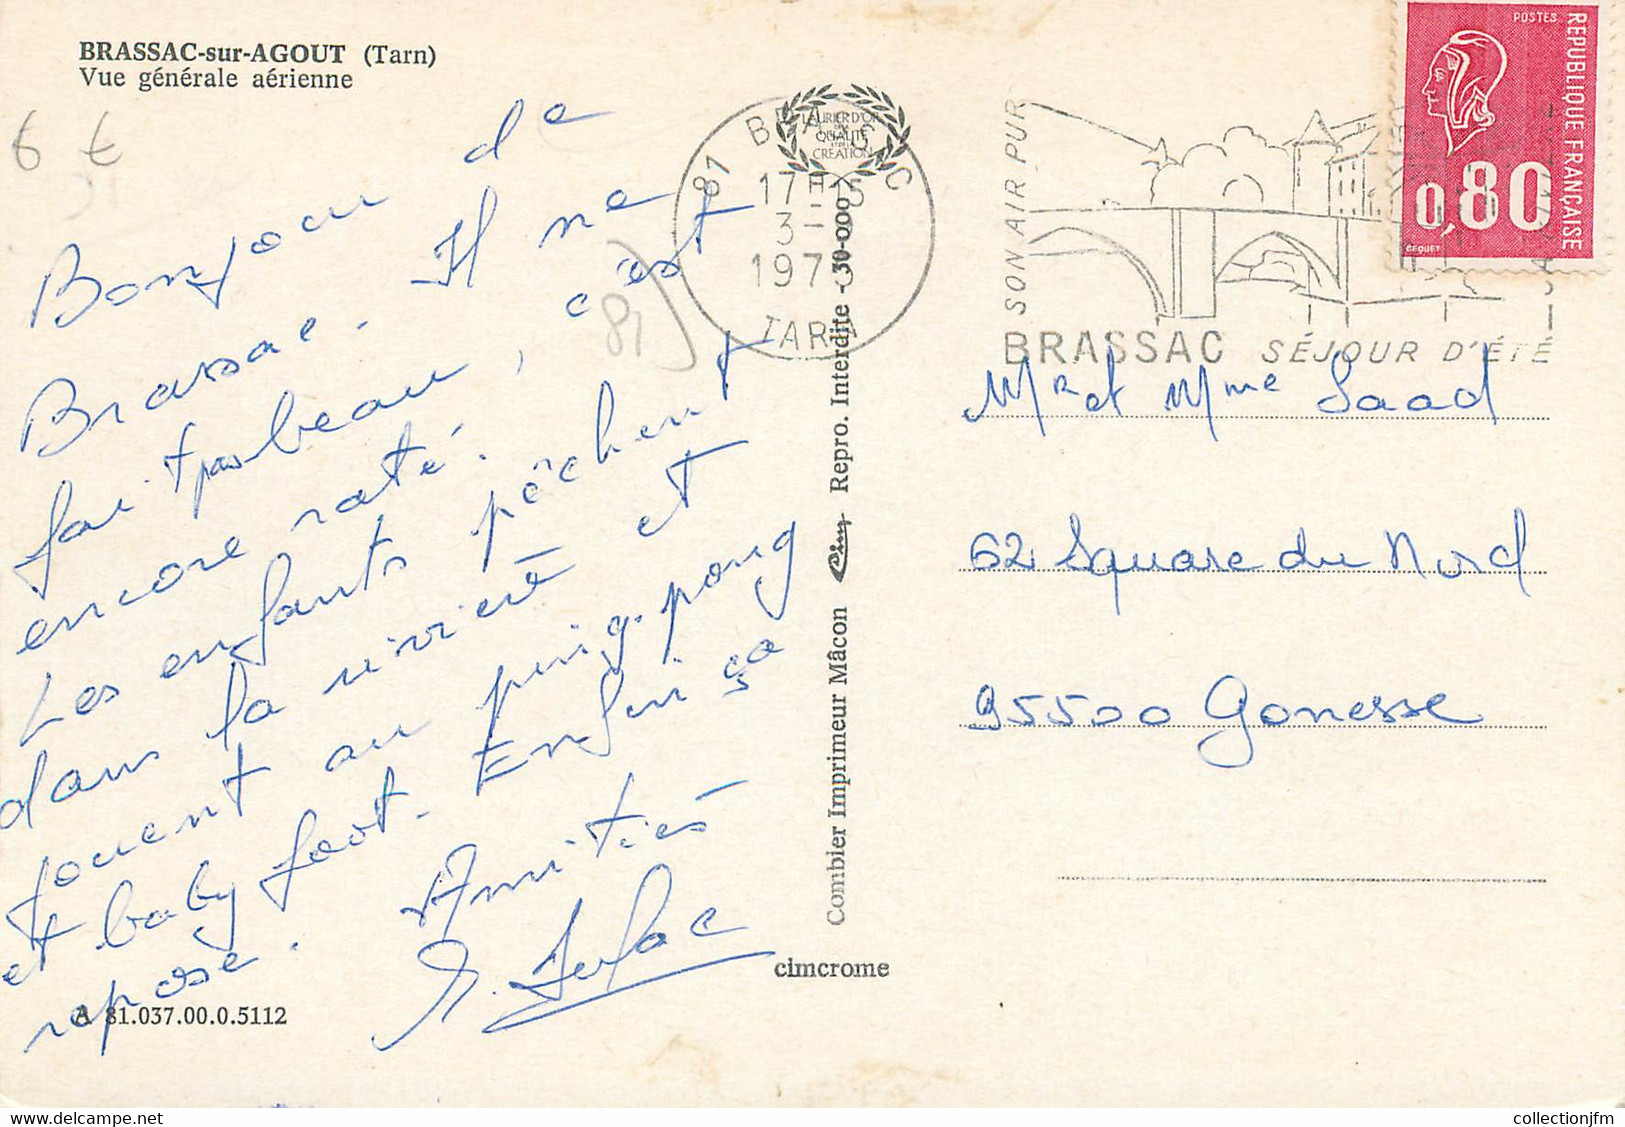 BRASSAC-sur-AGOUT (Tarn)
Vue générale aérienne
6 €
81
Bonjour de
Brassac. Il ne
fait pas beau, c'est
encore raté.
Les enfants pêchent
dans la rivière et
jouent au ping-pong
et baby foot. Enfin ça
repose. Amitiés
A 81.037.00.0.5112
cimcrome
Combier Imprimeur Mâcon Cim Repro. Interdite - 30-000
LAURIER D'OR
DE LA
QUALITÉ
CRÉATION
81 BRASSAC
17H15
3-
197
TARN
SON AIR PUR
BRASSAC SÉJOUR D'ÉTÉ
POSTES
REPUBLIQUE FRANÇAISE
0,80
BEQUET
Mr et Mme Saad
62 Square du Nord
95500 Gonesse
collectionjfm
www.delcampe.net